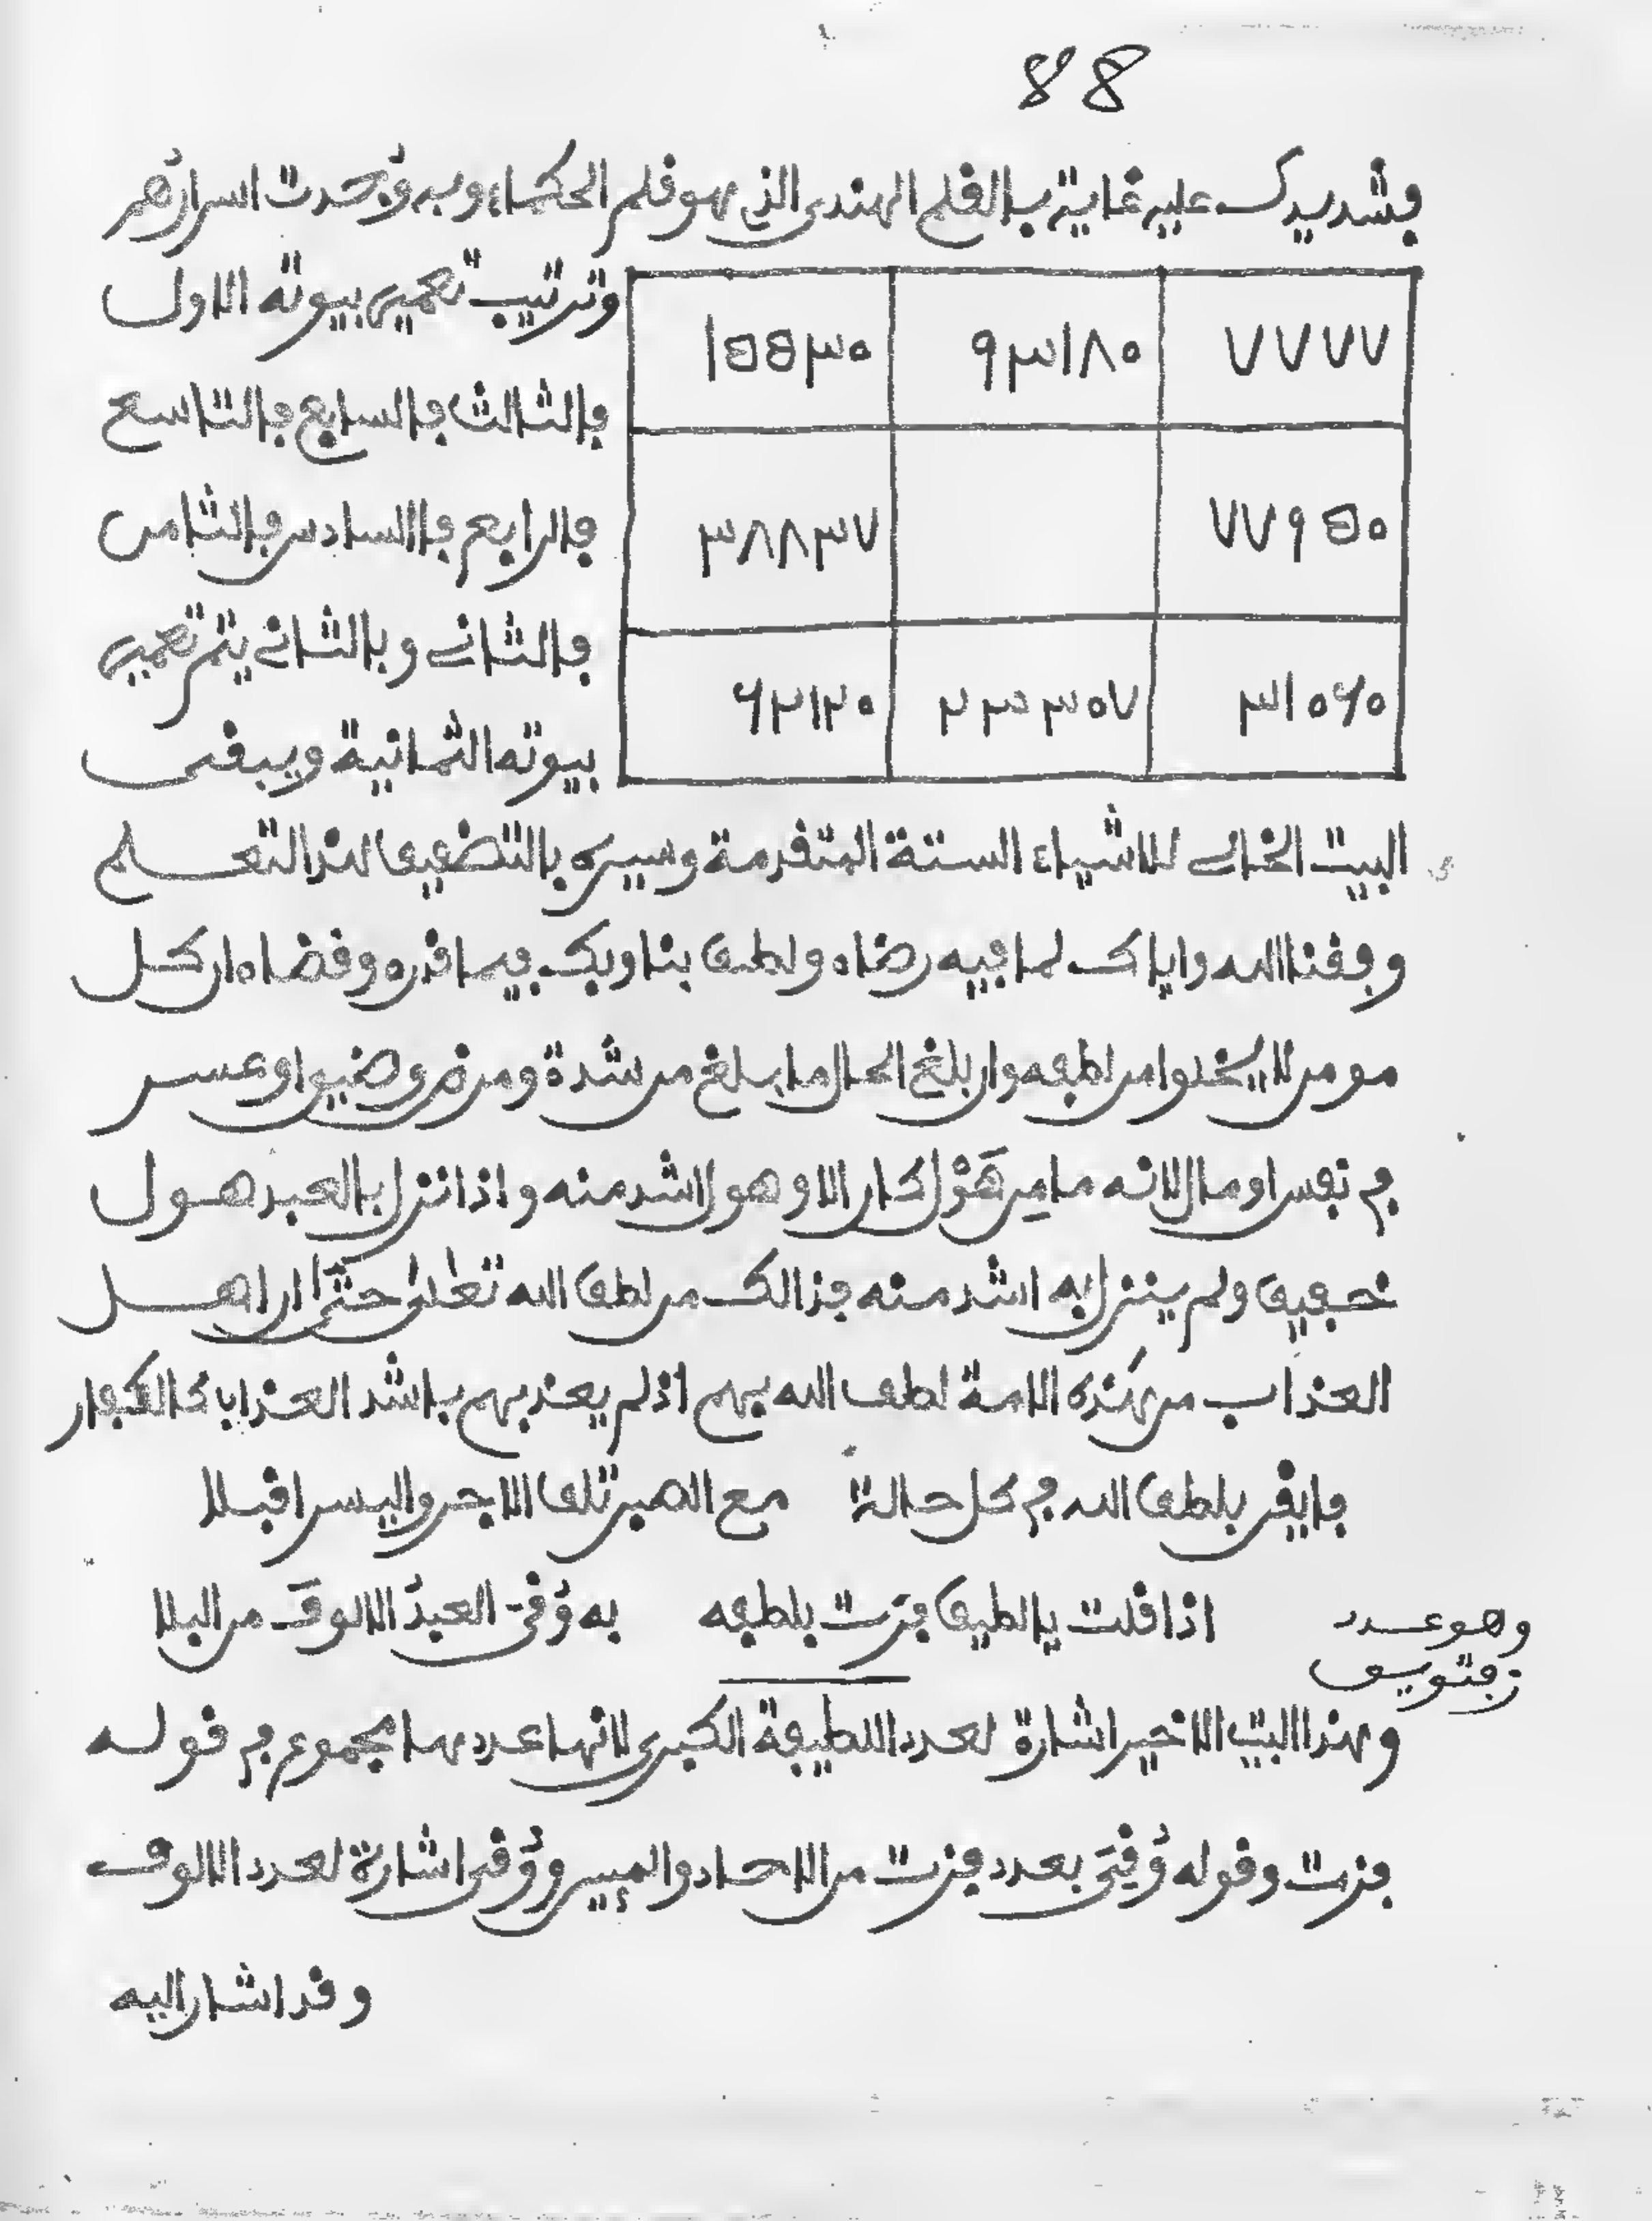 88
فشد يدك عليه غاية بالقلم الهندي الذي هو قلم الحكماء وبه وُجدت اسرارُهم
وترتيب تعمير بيوته الاول
فالثالث فالسابع فالتاسع
فالرابع فالسادس فالثامن
فالثاني وبالثاني يتم تعمير
بيوته الثمانية ويبقى
٧٧٧٧ ٩٣١٨٠ ١٥٥٣٠
٧٧٩٥٠ ٣٨٨٣٧
٣١٠٦٠ ٢٣٣٠٧ ٦٢١٢٠
البيت الخالي للاشياء الستة المتقدمة وسيره بالتضعيف لذا التعلم
وفقنا الله واياك لما فيه رضاه ولطف بنا وبك فيما قدره وقضاه ان كل
مومن لا يخلوا من لطفه وان بلغ الحال ما بلغ من شدة ومرض وضيق او عسر
في نفس او مال لانه ما مِن هَوْل كان الا وهول اشد منه واذا نزل بالعبد هول
خفيف ولم ينزل به اشد منه فذالك من لطف الله تعلى حتى ان اهل
العذاب من هذه الامة لطف الله بهم اذ لم يعذبهم باشد العذاب كالكفار
فايقن بلطف الله في كل حالة مع الصبر تلف الاجر واليسر اقبلا
اذا قلت يا لطيف فزت بلطفه به وُقي العبدُ الالوفَ من البلا
وهو عدد
زفتويق
وهذا البيت الاخير اشارة لعدد اللطيفة الكبرى لانها عددها مجموع في قوله
فزت وقوله وُقِيَ بعدد فزت من الاحاد والميين ووُقي اشارة لعدد الالوف
وقد اشار اليه